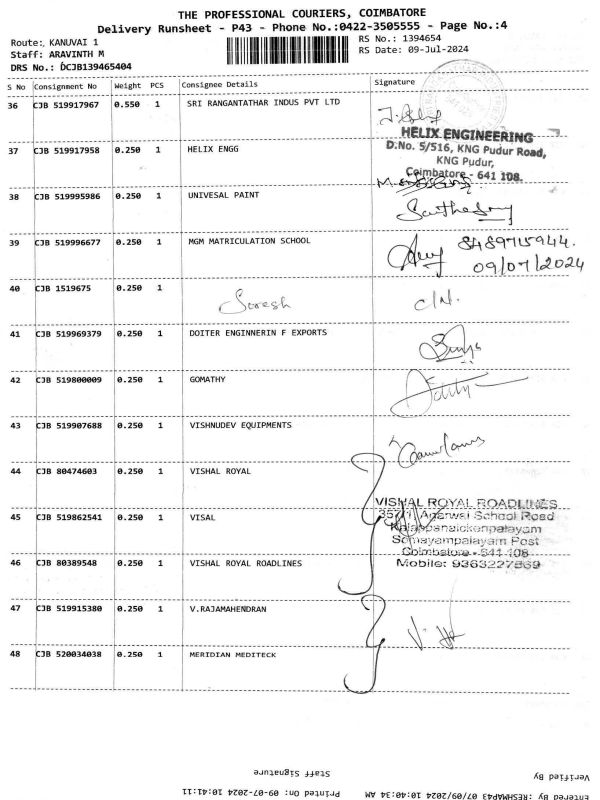 THE PROFESSIONAL COURIERS, COIMBATORE
Delivery Runsheet - P43 - Phone No.:0422-3505555 - Page No.:4
Route: KANUVAI 1
RS No.: 1394654
Staff: ARAVINTH M
RS Date: 09-Jul-2024
DRS No.: DCJB139465404
S No Consignment No Weight PCS Consignee Details Signature
36 CJB 519917967 0.550 1 SRI RANGANTATHAR INDUS PVT LTD
HELIX ENGINEERING
D.No. 5/516, KNG Pudur Road,
KNG Pudur,
Coimbatore - 641 108.
37 CJB 519917958 0.250 1 HELIX ENGG
38 CJB 519995986 0.250 1 UNIVESAL PAINT
39 CJB 519996677 0.250 1 MGM MATRICULATION SCHOOL
8489715944.
09/07/2024
40 CJB 1519675 0.250 1 Suresh
41 CJB 519969379 0.250 1 DOITER ENGINNERIN F EXPORTS
42 CJB 519800009 0.250 1 GOMATHY
43 CJB 519907688 0.250 1 VISHNUDEV EQUIPMENTS
44 CJB 80474603 0.250 1 VISHAL ROYAL
VISHAL ROYAL ROADLINES
357/1 Agarwal School Road
Kalappanaickenpalayam
Somayampalayam Post
Coimbatore - 541 108
Mobile: 9363227569
45 CJB 519862541 0.250 1 VISAL
46 CJB 80389548 0.250 1 VISHAL ROYAL ROADLINES
47 CJB 519915380 0.250 1 V.RAJAMAHENDRAN
48 CJB 520034038 0.250 1 MERIDIAN MEDITECK
Staff Signature
Verified By
Printed On: 09-07-2024 10:41:11
Entered By: RESHMAP43 07/09/2024 10:40:34 AM